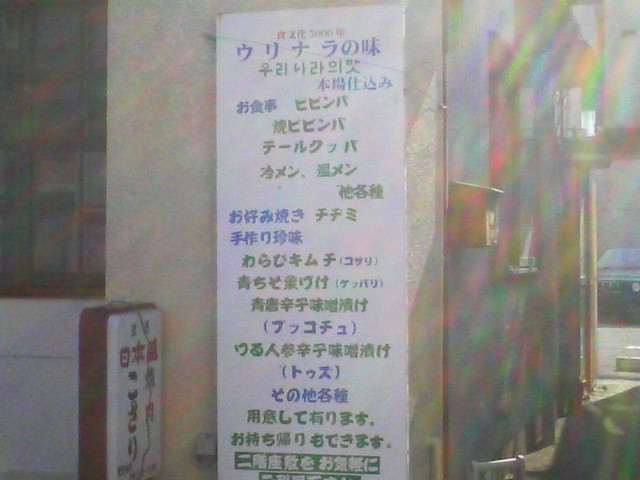 食文化5000年
ウリナラの味
우리나라의맛
本場仕込み
お食事 ビビンバ
焼ビビンバ
テールクッパ
冷メン、温メン
他各種
お好み焼き チヂミ
手作り珍味
わらびキムチ(コサリ)
青ちそ葉づけ(ケッパリ)
青唐辛子味噌漬け
(プッコチュ)
つる人参辛子味噌漬け
(トゥス)
その他各種
用意して有ります。
お持ち帰りもできます。
二階座敷をお気軽に
日本盛
焼肉
こさり